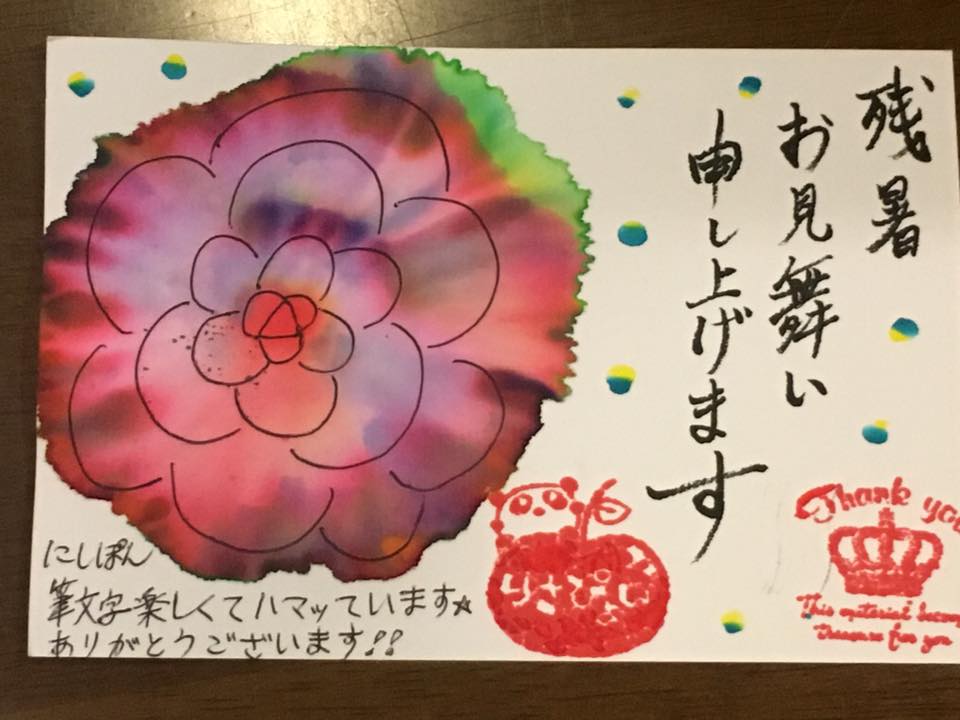 残暑
お見舞い
申し上げます
にしぽん
筆文字楽しくてハマッています☆
ありがとうございます!!
りさぴょん
Thank you
This material becom
treasure for you